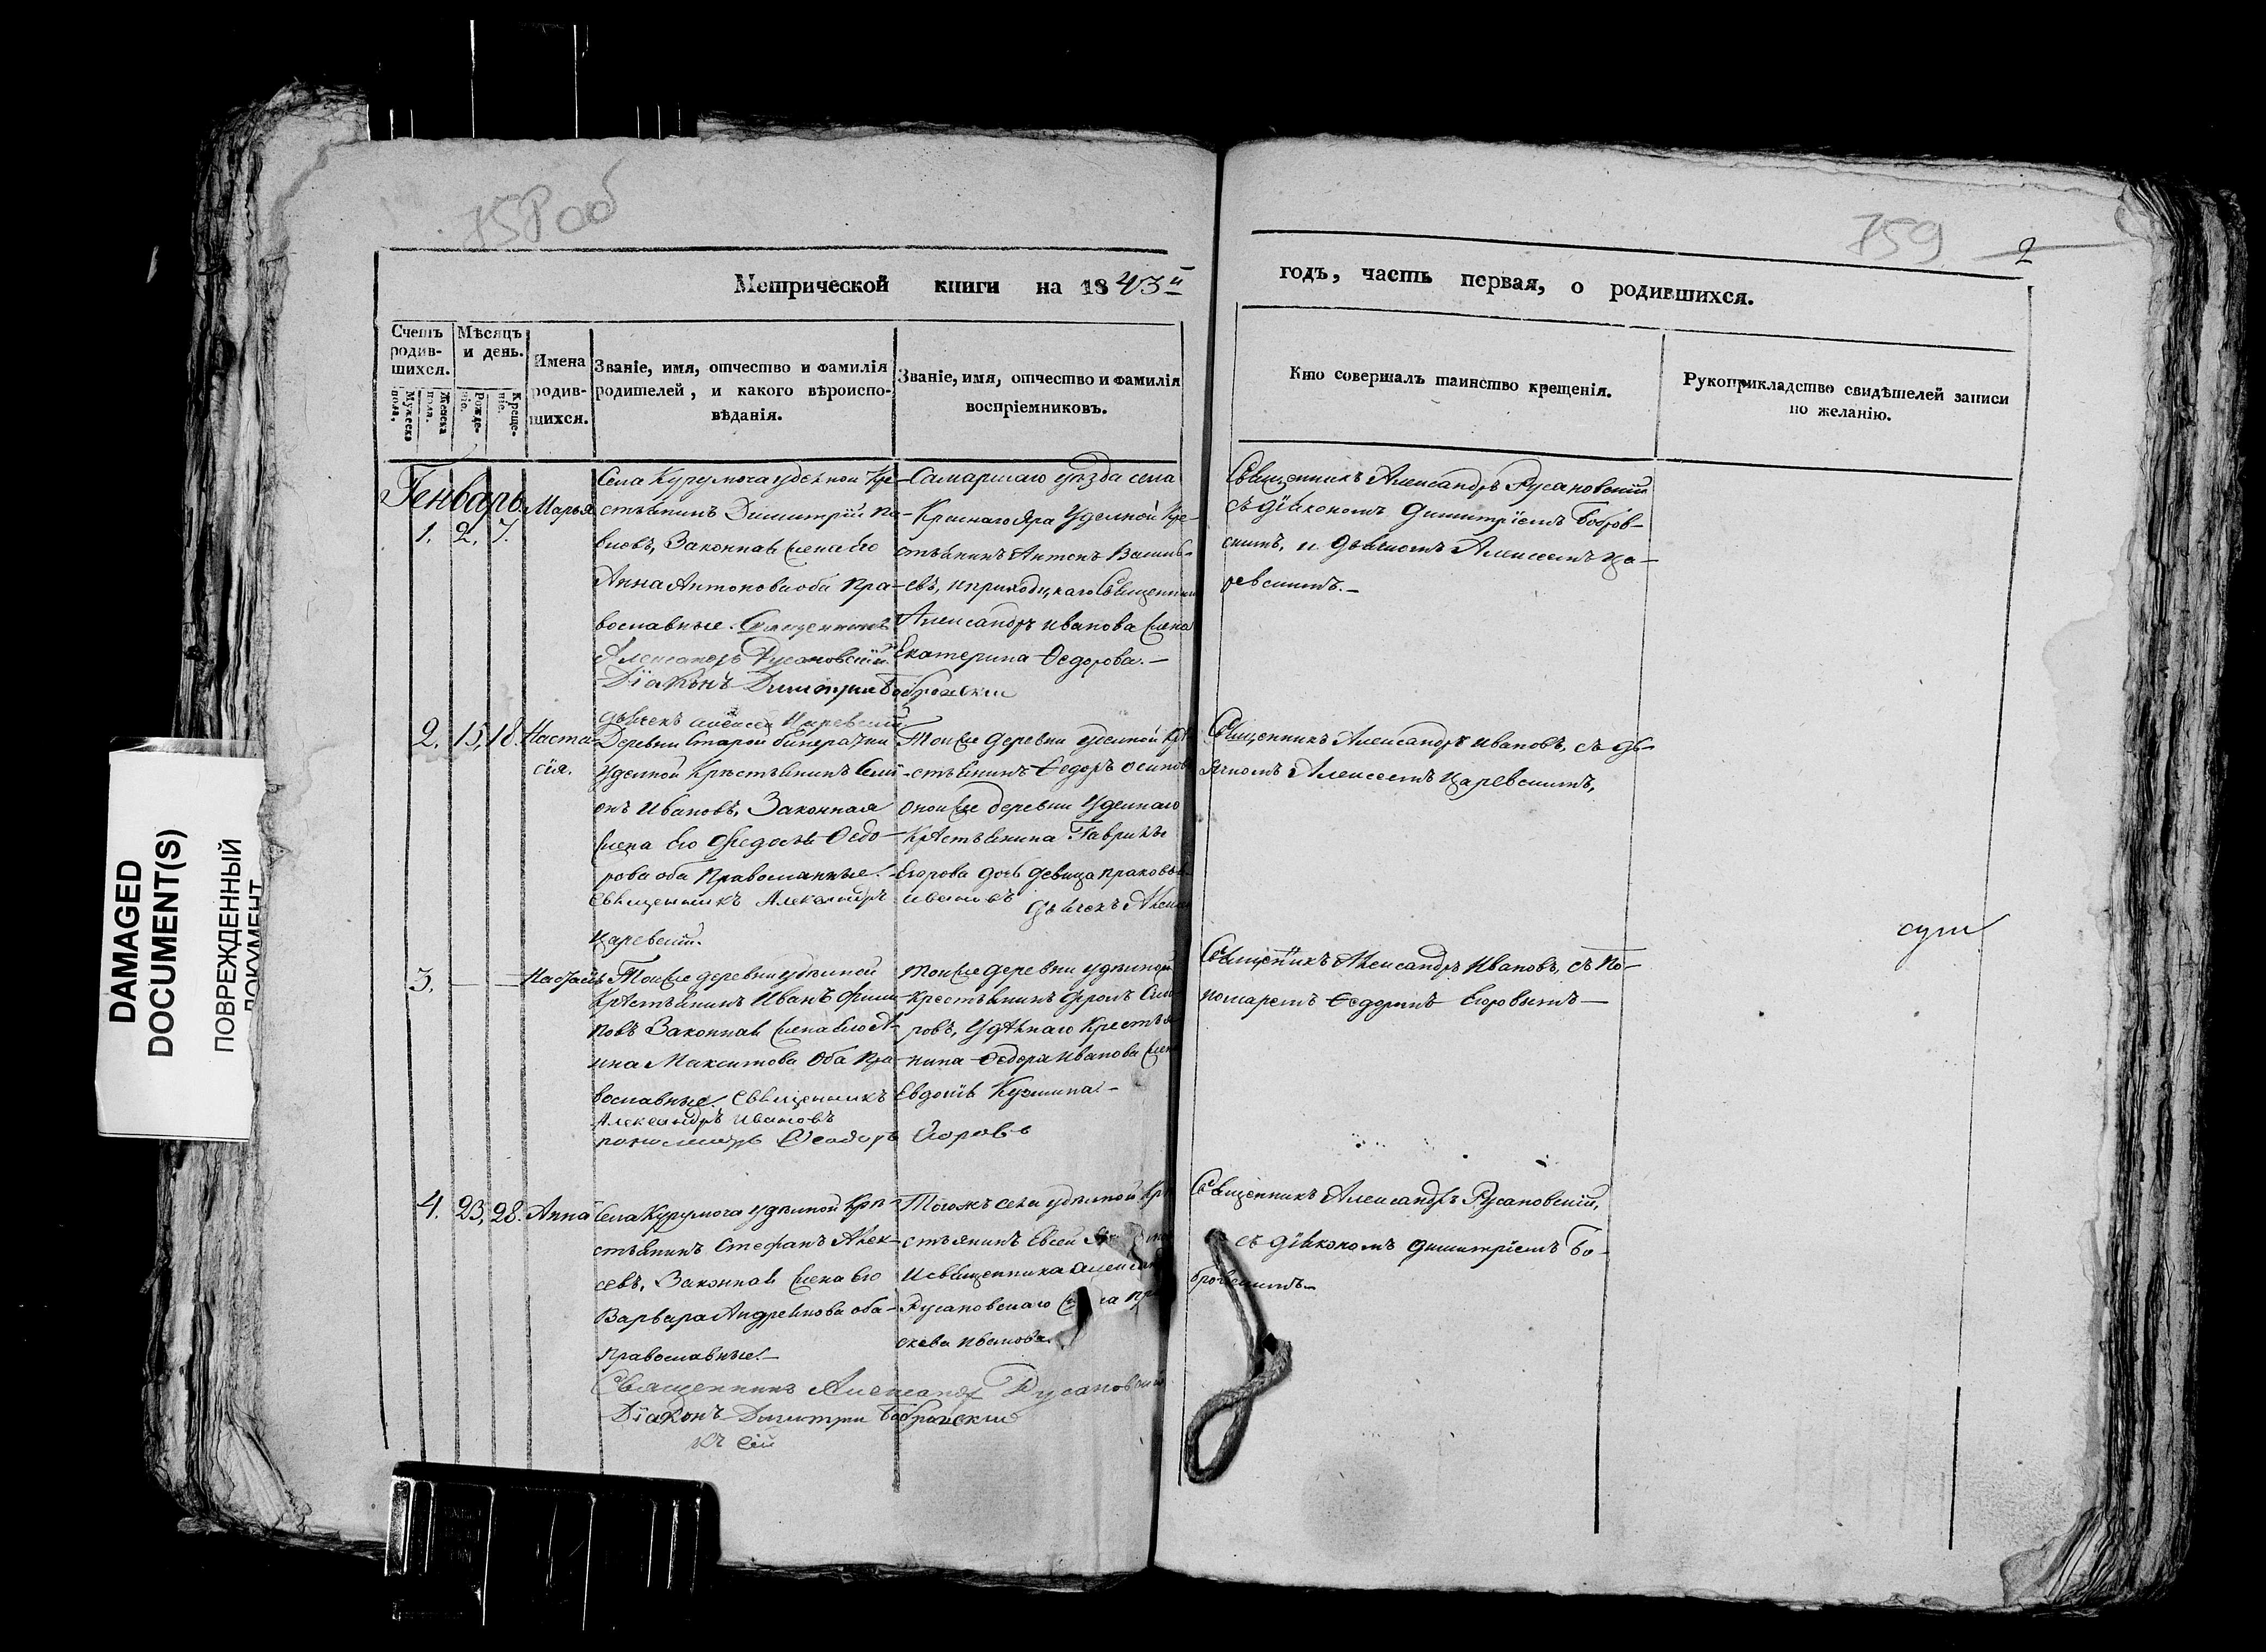 758 об
759
2
Метрической книги на 1843й
годъ, часть первая, о родившихся.
Счетъ родив-шихся.
Мужеска пола.
Женска пола.
Мѣсяцъ и день.
Рожде-ніе.
Креще-ніе.
Имена родив-шихся.
Званіе, имя, отчество и фамилія
родителей, и какого вѣроиспо-
вѣданія.
Званіе, имя, отчество и фамилія
воспріемниковъ.
Кто совершалъ таинство крещенія.
Рукоприкладство свидѣтелей записи
по желанію.
Генварь
1. 2. 7. Марья
Села Курумоча удѣльной Кре-
стьянинъ Димитрій Па-
вловъ, Законная жена его
Анна Антонова оба Пра-
вославные. Священникъ
Александръ Русановскій
Діаконъ Димитрий Бобровский
дьячекъ Алексей Царевский
Самарскаго уѣзда села
Краснаго Яра Уделной Кре-
стьянинъ Антонъ Василь-
евъ, и приходскаго Священника
Александра Иванова жена
Екатерина Ѳедорова.
Священникъ Александръ Русановский
съ діякономъ Димитріемъ Бобров-
скимъ, и дьячкомъ Алексеемъ Ца-
ревскимъ.
2. 15. 18. Наста-
сія.
Деревни Старой
Уделной Крестьянинъ Сими-
онъ Ивановъ, Законная
жена его Ѳедо-
рова оба Православные.
Священникъ Александръ Ивановъ
дьячекъ Алексей
Царевский.
Тойже деревни уделной Кре-
стьянинъ Ѳедоръ Осиповъ
оной же деревни Уделнаго
Крестьянина Гаврилы
Егорова дочь девица
Священникъ Александръ Ивановъ, съ дь-
ячкомъ Алексеемъ Царевскимъ,
3. — — Настасья
Тойже деревни уделной
Крестьянинъ Иванъ Филип-
повъ Законная жена его
Максимова Оба Пра-
вославные. Священникъ
Александръ Ивановъ
пономарь Ѳеодоръ Егоровъ
Тойже деревни уделной
Крестьянинъ Фролъ
Уделнаго Крестья-
нина Ѳедора Иванова жена
Евдокія Кузмина
Священникъ Александръ Ивановъ, съ По-
номаремъ Ѳедоромъ Егоровымъ
4. 23, 28. Анна
Села Курумоча уделной Кре-
стьянинъ Стефанъ Алек-
сеевъ, Законная жена его
Варвара Андреянова оба
Православные.
Священникъ Александръ Русановский
Діаконъ Димитрий Бобровский
Тогожъ села уделной Кре-
стьянинъ Евсей
И священника Александра
Русановскаго
Иванова
Священникъ Александръ Русановский,
съ діякономъ Димитріемъ Бо-
бровскимъ
DAMAGED
DOCUMENT(S)
ПОВРЕЖДЕННЫЙ
ДОКУМЕНТ